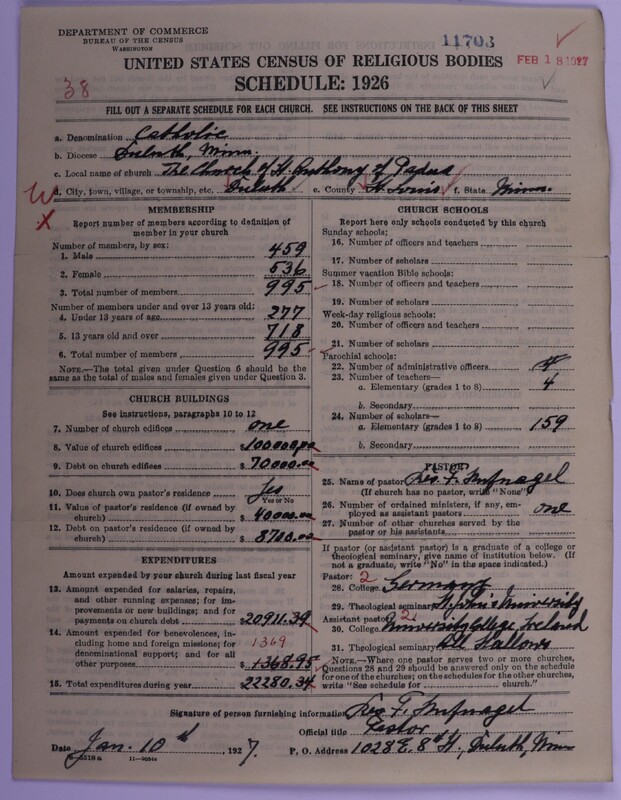 DEPARTMENT OF COMMERCE
BUREAU OF THE CENSUS
WASHINGTON
11703
FEB 18 1927
UNITED STATES CENSUS OF RELIGIOUS BODIES
SCHEDULE: 1926
38
FILL OUT A SEPARATE SCHEDULE FOR EACH CHURCH. SEE INSTRUCTIONS ON THE BACK OF THIS SHEET
a. Denomination Catholic
b. Diocese Duluth, Minn.
c. Local name of church The Church of St. Anthony of Padua
d. City, town, village, or township, etc. Duluth e. County St. Louis f. State Minn.
MEMBERSHIP
Report number of members according to definition of
member in your church
Number of members, by sex:
1. Male 459
2. Female 536
3. Total number of members 995
Number of members under and over 13 years old:
4. Under 13 years of age 277
5. 13 years old and over 718
6. Total number of members 995
NOTE.—The total given under Question 6 should be the
same as the total of males and females given under Question 3.
CHURCH BUILDINGS
See instructions, paragraphs 10 to 12
7. Number of church edifices one
8. Value of church edifices $100000.00
9. Debt on church edifices $70000.00
10. Does church own pastor's residence Yes
Yes or No
11. Value of pastor's residence (if owned by
church) $40000.00
12. Debt on pastor's residence (if owned by
church) $8700.00
EXPENDITURES
Amount expended by your church during last fiscal year
13. Amount expended for salaries, repairs,
and other running expenses; for im-
provements or new buildings; and for
payments on church debt $20911.39
14. Amount expended for benevolences, in-
cluding home and foreign missions; for
denominational support; and for all
other purposes $1368.95
1369
15. Total expenditures during year $22280.34
CHURCH SCHOOLS
Report here only schools conducted by this church
Sunday schools:
16. Number of officers and teachers
17. Number of scholars
Summer vacation Bible schools:
18. Number of officers and teachers
19. Number of scholars
Week-day religious schools:
20. Number of officers and teachers
21. Number of scholars
Parochial schools:
22. Number of administrative officers
23. Number of teachers—
a. Elementary (grades 1 to 8) 4
b. Secondary
24. Number of scholars—
a. Elementary (grades 1 to 8) 159
b. Secondary
PASTOR
25. Name of pastor Rev. F.
(If church has no pastor, write "None")
26. Number of ordained ministers, if any, em-
ployed as assistant pastors one
27. Number of other churches served by the
pastor or his assistants
If pastor (or assistant pastor) is a graduate of a college or
theological seminary, give name of institution below. (If
not a graduate, write "No" in the space indicated.)
Pastor: 2
28. College Germany
29. Theological seminary St. John's University
Assistant pastor: 2
30. College University College Ireland
31. Theological seminary All Hallows
NOTE.—Where one pastor serves two or more churches,
Questions 28 and 29 should be answered only on the schedule
for one of the churches; on the schedules for the other churches,
write "See schedule for church."
Signature of person furnishing information Rev. F.
Official title Pastor
Date Jan. 10th, 1927.
P. O. Address 1028 E. 8th St, Duluth, Minn